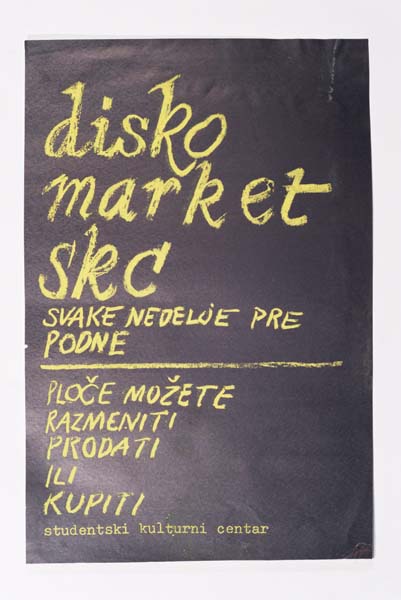 disko
market
skc
SVAKE NEDELJE PRE
PODNE
PLOČE MOŽETE
RAZMENITI
PRODATI
ILI
KUPITI
studentski kulturni centar